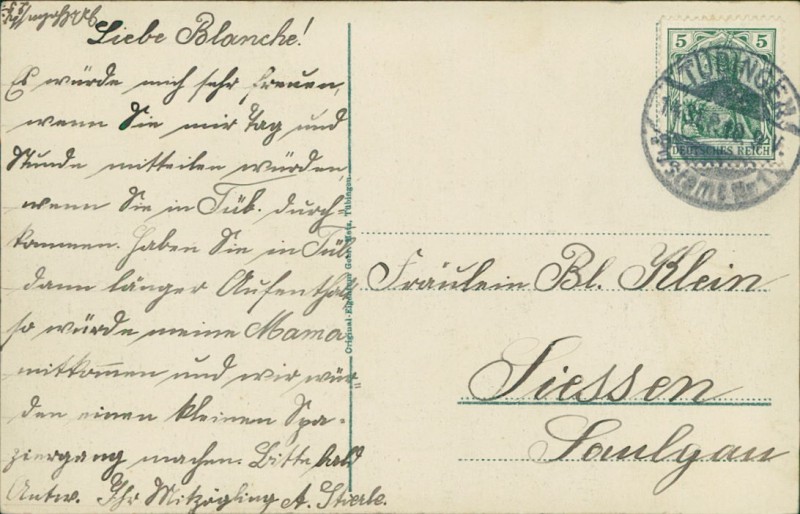 Liebe Blanche!
Es würde mich sehr freuen,
wenn Sie mir Tag und
Stunde mitteilen würden,
wenn Sie in Tüb. durch-
kommen. Haben Sie in Tüb.
dann länger Aufenthalt
so würde meine Mama
mitkommen und wir wür-
den einen kleinen Spa-
ziergang machen. Bitte bald
Antw. Ihr Mitzögling A. Stierle.
Original-Eigentum Gebr. Metz, Tübingen
5 5
DEUTSCHES REICH
TÜBINGEN
Fräulein Bl. Klein
Siessen
Saulgau